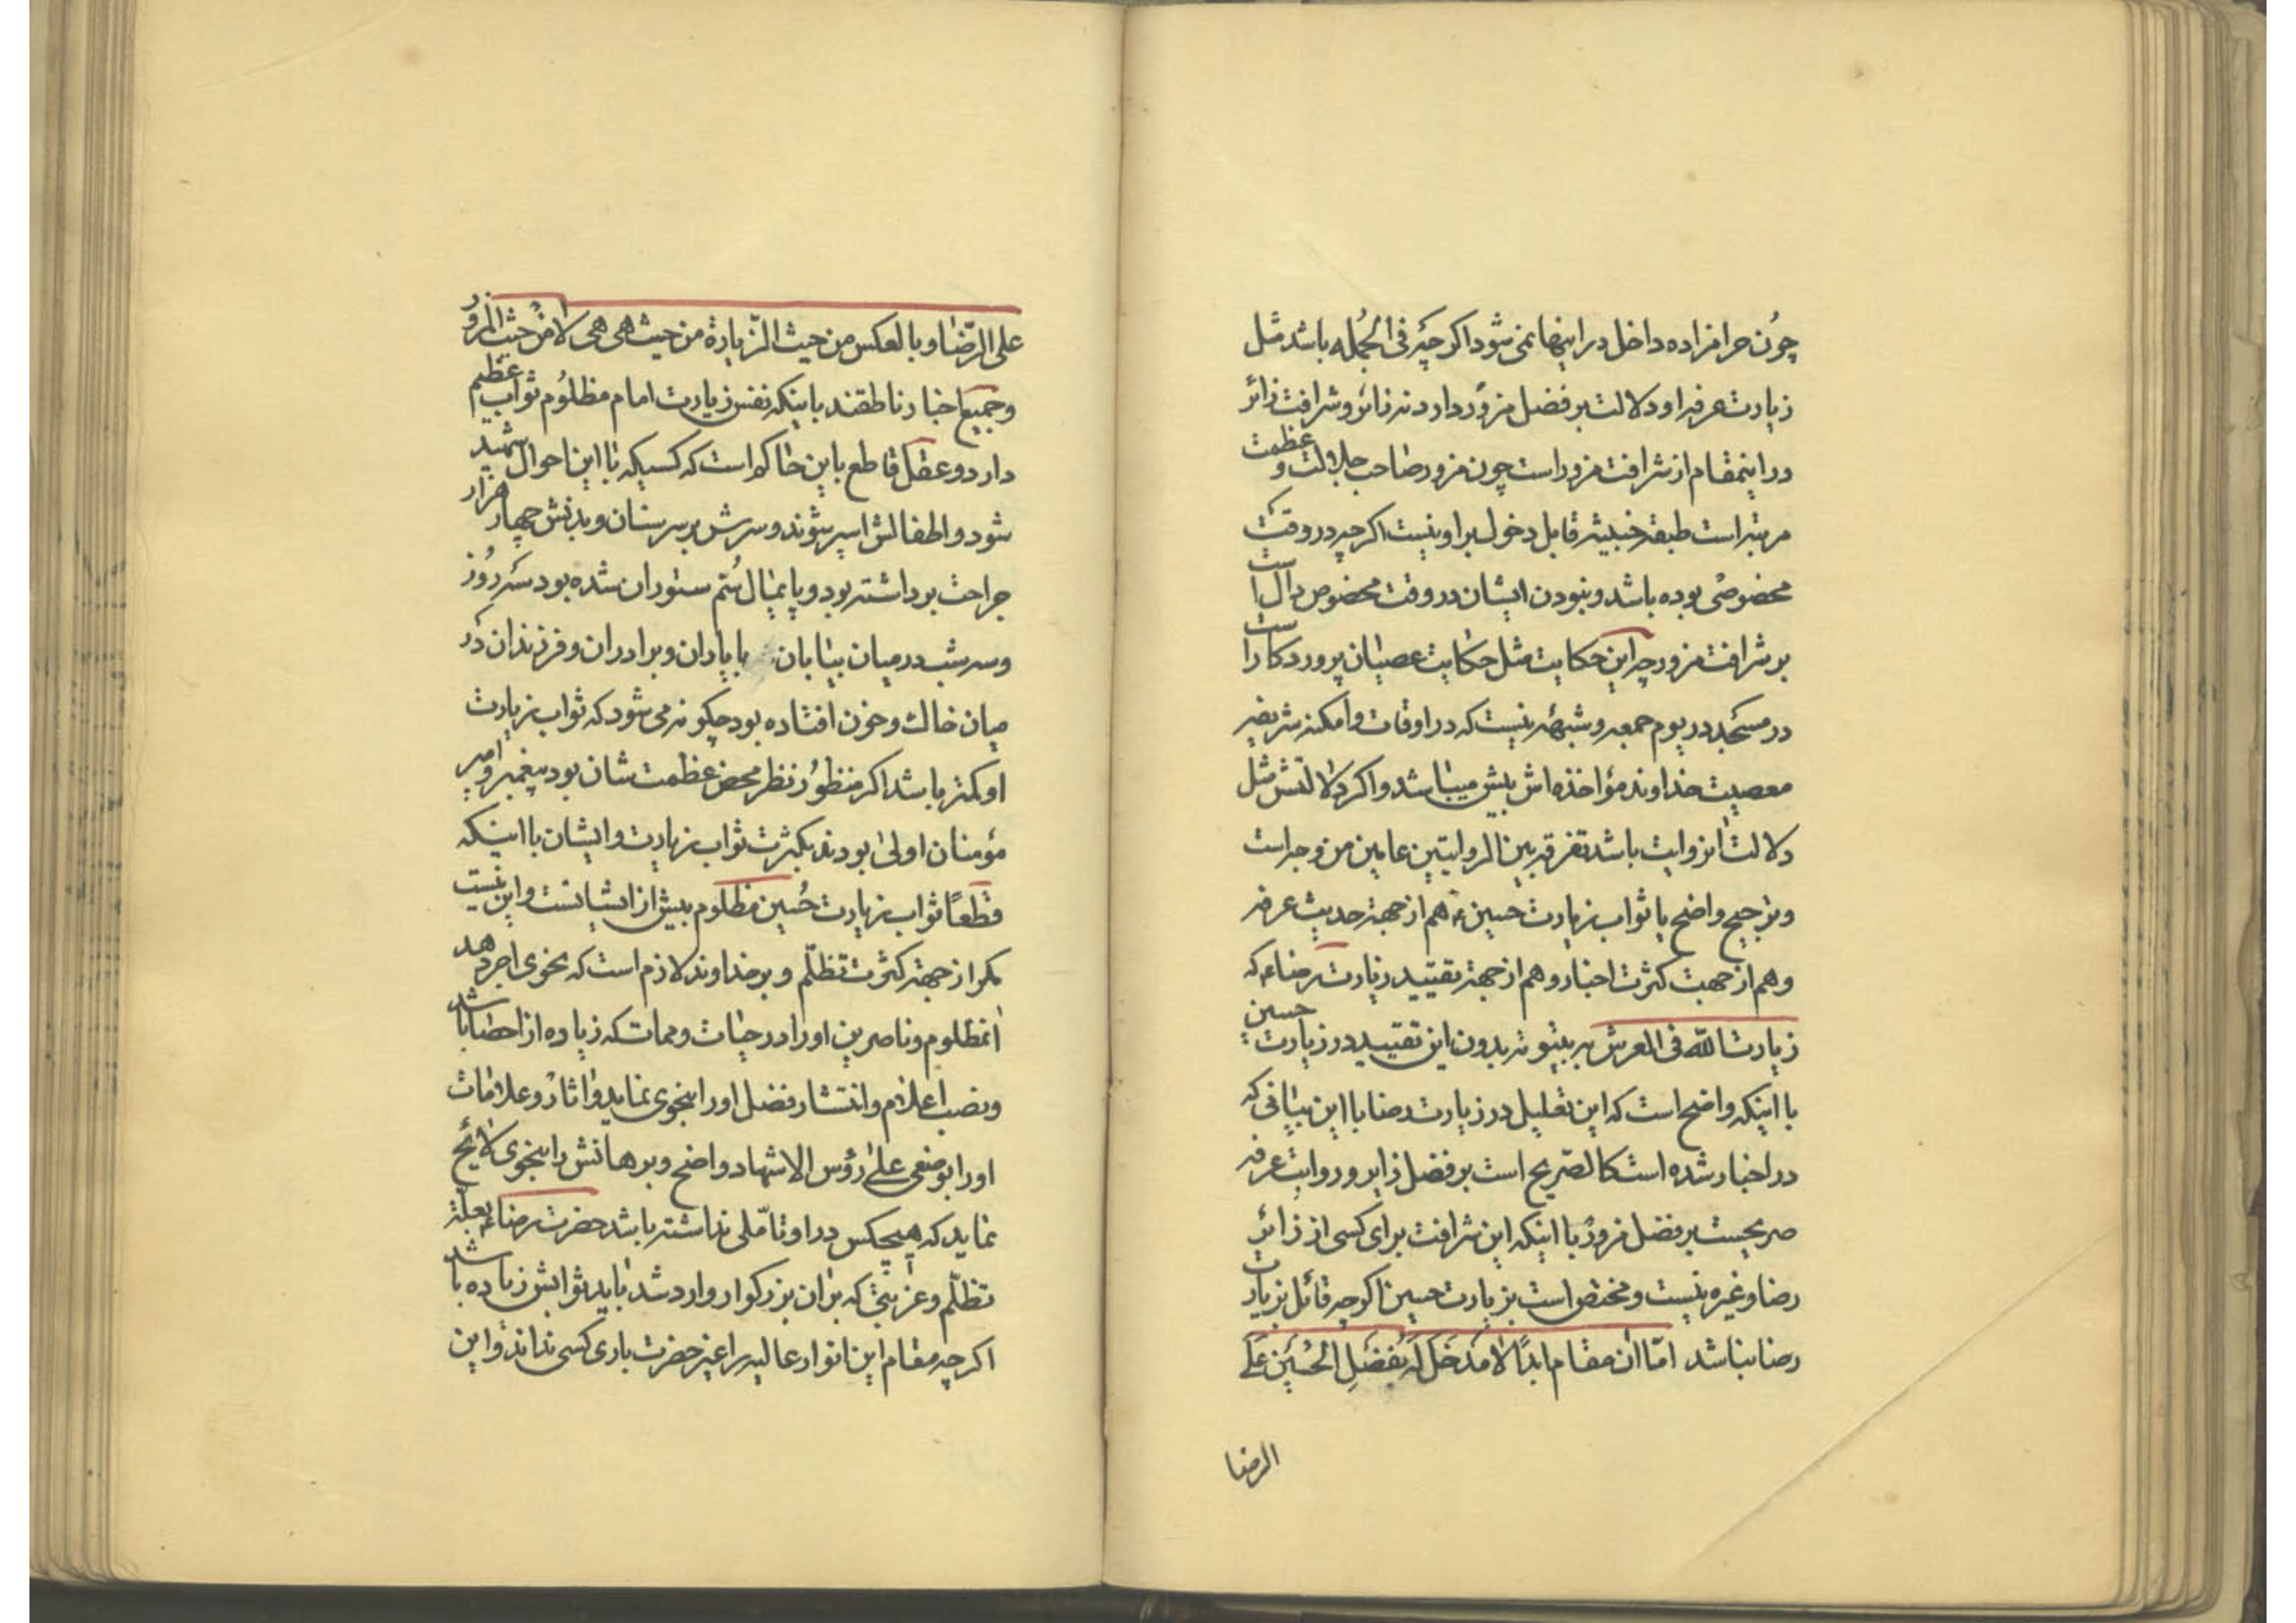 چون حرامزاده داخل در اینها نمی شود اکر چه فی الجمله باشد مثل
زیارت عرفه او دلالت بر فضل مزور دارد نه زائر و شرافت زائر
در اینمقام از شرافت مزور است چون مزور صاحب جلالت و عظمت
مرتبه است طبقه خبیثه قابل دخول بر او نیست اکر چه در وقت
مخصوصی بوده باشد و نبودن ایشان در وقت مخصوص دال است
بر شرافت مزور چه این حکایت مثل حکایت عصیان پروردکار است
در مسجد در یوم جمعه و شبهه نیست که در اوقات و امکنه شریفه
معصیت خداوند مؤاخذه اش بیش میباشد و اکر دلالتش مثل
دلالت آنروایت باشد تفرقه بین الروایتین عامین من وجه است
و ترجیح واضح با ثواب زیارت حسین ع هم از جهة حدیث عرفه
و هم از جهت کثرت اخبار و هم از جهة تقیید زیارت رضا ع که
زیارت الله فی العرش به بیتوته بدون این تقیید در زیارت حسین
با اینکه واضح است که این تعلیل در زیارت رضا با این بیانی که
در اخبار شده است کالصریح است بر فضل زایر و روایت عرفه
صریحست بر فضل مزور با اینکه این شرافت برای کسی از زائر
رضا و غیره نیست و مختص است بزیارت حسین اکر چه قائل بزیارت
رضا نباشد اما آن مقام ابدًا لا مدخل له بفضل الحسین علی
الرضا
علی الرضا و بالعکس من حیث الزیارة من حیث هی هی لا من حیث المزور
و جمیع اخبار ناطقند باینکه نفس زیارت امام مظلوم ثواب عظیم
دارد و عقل قاطع باین حاکم است که کسیکه با این احوال شهید
شود و اطفالش اسیر شوند و سرش بر سر سنان و بدنش چهار هزار
جراحت برداشته بود و پایمال سُم ستوران شده بود سه روز
و سه شب در میان بیابان با یاران و برادران و فرزندان در
میان خاك و خون افتاده بود چکونه می شود که ثواب زیارت
او کمتر باشد اکر منظور نظر محض عظمت شان بود پیغمبر و امیر
مؤمنان اولی بودند بکثرت ثواب زیارت و ایشان با اینکه
قطعًا ثواب زیارت حُسین مظلوم بیش از ایشانست و این نیست
مکر از جهة کثرت تظلّم و بر خداوند لازم است که نحوی اجر دهد
آنمظلوم و ناصرین او را در حیات و ممات که زیاده از احصا باشد
و نصب اعلام و انتشار فضل او را بنحوی نماید و اثار و علامات
او را بوضعی علی رؤس الاشهاد واضح و برهانش را بنحوی لایح
نماید که هیچکس در او تامّلی نداشته باشد حضرت رضا ع بعلة
تظلّم و غربتی که بران بزرکوار وارد شد باید ثوابش زیاده باشد
اکر چه مقام این انوار عالیه را غیر حضرت باری کسی نداند و این